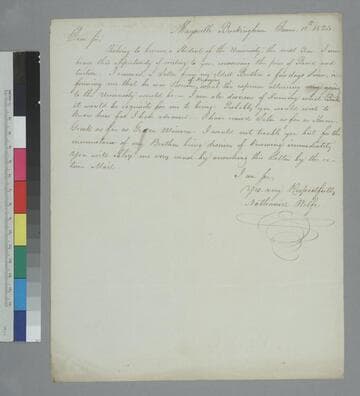 Maysville Buckingham June 15th 1825
Dear Sir,
Wishing to become a Student of the University the next Session I em
brace this opportunity of writing to you concerning the price of Board and
tuition. I received a letter from my eldest Brother a few days since, in
forming me that he was desirous of knowing what the expenses attending
to the University would be. I am also desirous of knowing what Books
it would be requisite for me to bring. Probably you would wish to
know how far I have advanced. I have read Latin as far as Horace
Greek as far as Graeca Minora. I would not trouble you but for the
circumstance of my Brother being desirous of knowing immediately.
You will oblige me very much by answering this letter by the re
turn Mail.
I am Sir,
Yrs. very Respectfully
Nathaniel Wolfe.